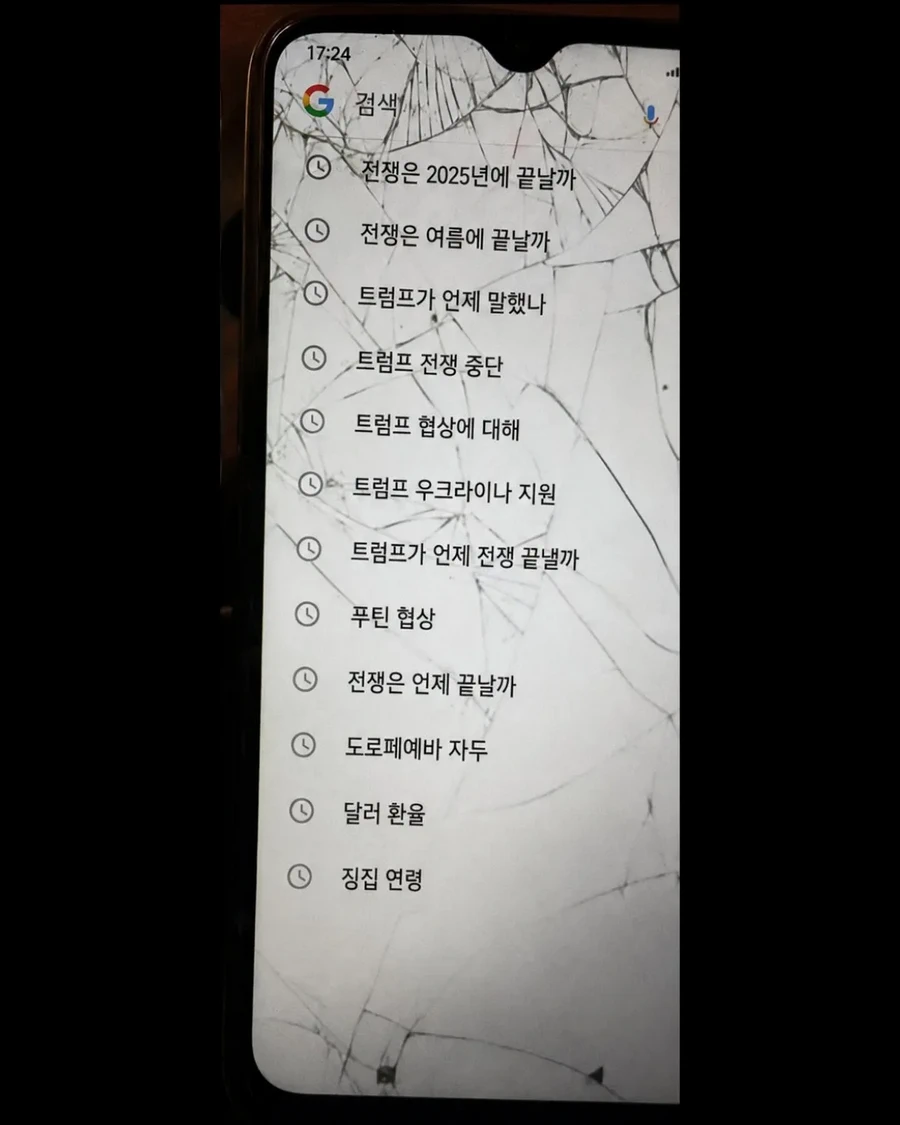 17:24
검색
전쟁은 2025년에 끝날까
전쟁은 여름에 끝날까
트럼프가 언제 말했나
트럼프 전쟁 중단
트럼프 협상에 대해
트럼프 우크라이나 지원
트럼프가 언제 전쟁 끝낼까
푸틴 협상
전쟁은 언제 끝날까
도로페예바 자두
달러 환율
징집 연령